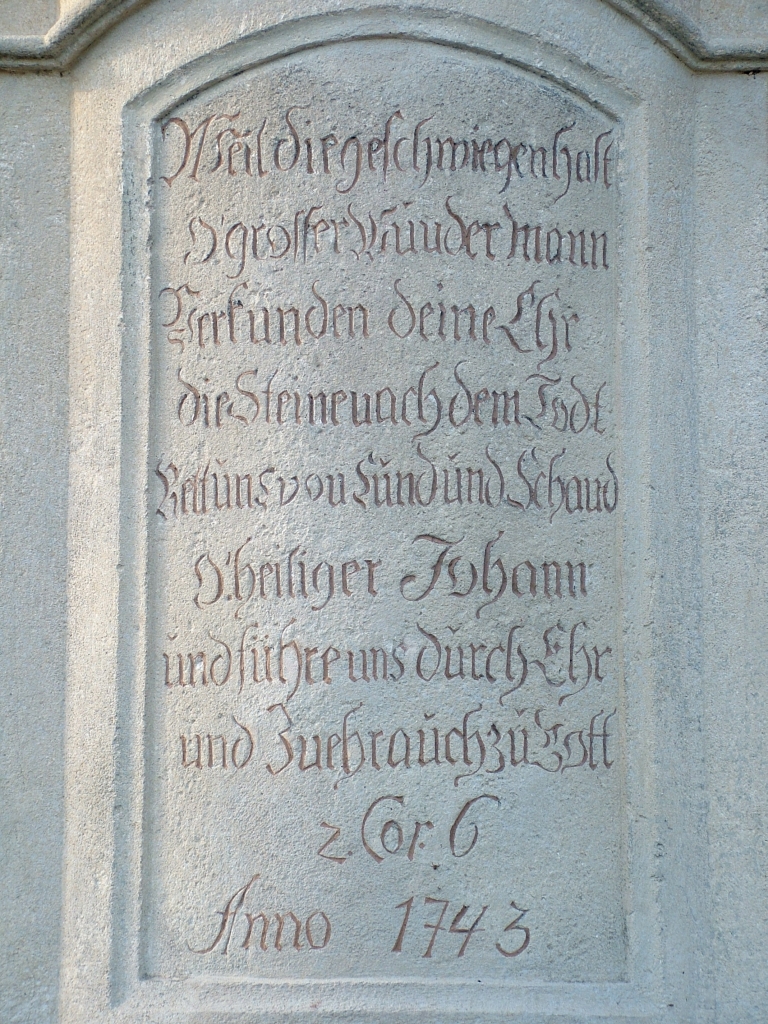 Weil die geschwiegen hast
O' grosser Wunder Mann
Verkunden deine Ehr
die Steine nach dem Todt
Rett uns von Sünd und Schand
O' heiliger Johann
und führe uns durch Ehr
und zu Gott
2. Cor. 6
Anno 1743